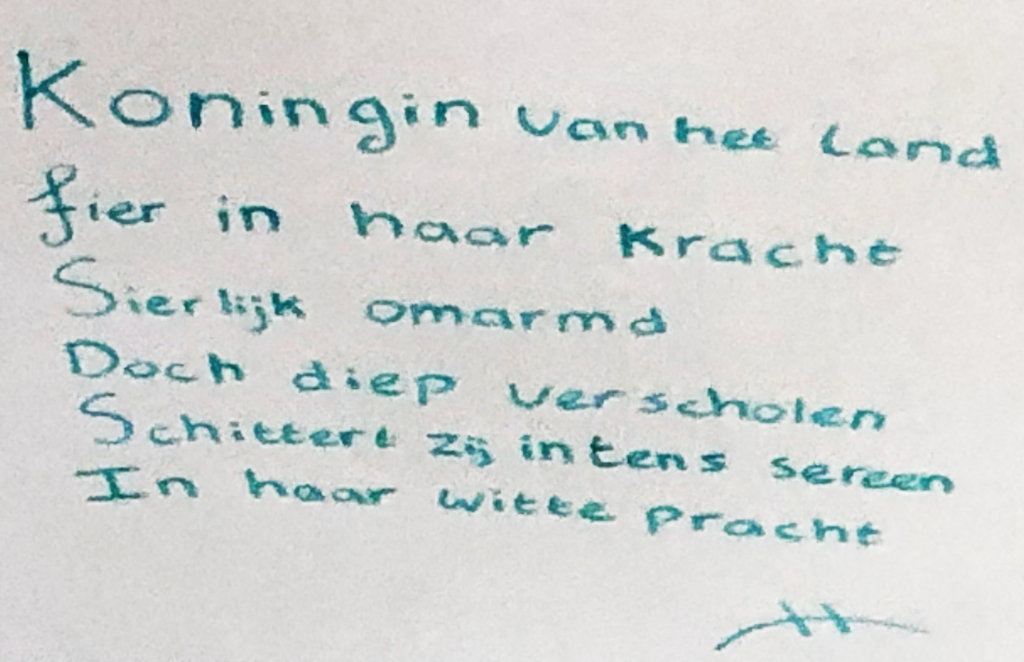 Koningin van het Land
fier in haar Kracht
Sierlijk omarmd
Doch diep verscholen
Schittert zij intens sereen
In haar witte pracht